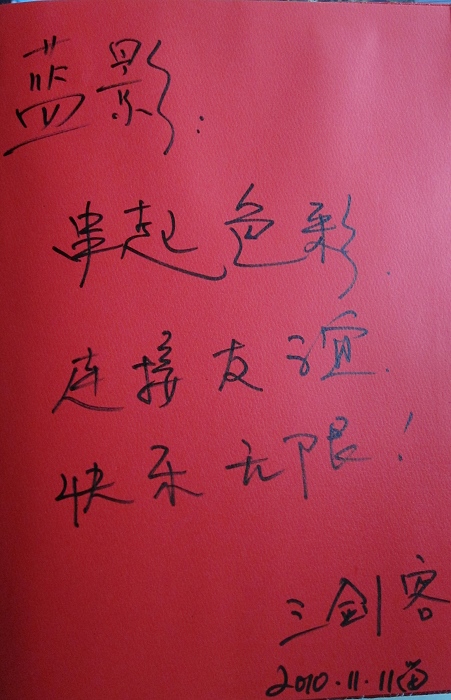 蓝影:
串起色彩.
连接友谊.
快乐无限!
三剑客
2010.11.11留